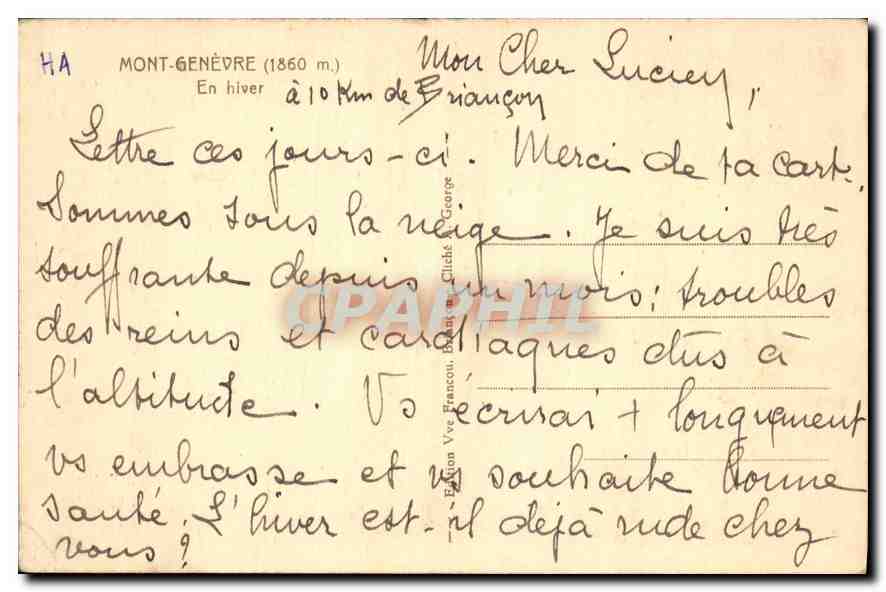 HA
MONT-GENÈVRE (1860 m.)
En hiver
à 10 Km de Briançon
Mon Cher Lucien,
Lettre ces jours-ci. Merci de ta carte.
Sommes sous la neige. Je suis très
souffrante depuis un mois : troubles
des reins et cardiaques dûs à
l'altitude. Vs écrirai + longuement
vs embrasse et vs souhaite bonne
santé. L'hiver est-il déjà rude chez
vous ?
Edition Vve Francou, Briançon - Cliché George
CPAPHIL